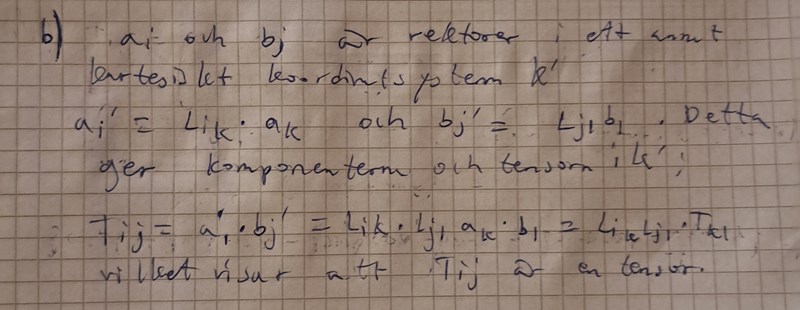 b) ai och bj är vektorer i ett annat
kartesiskt koordinatsystem k'
ai' = Lik · ak och bj' = Ljl bl . Detta
ger komponenterna och tensorn i k' ;
Tij = a'i · bj' = Lik · Ljl ak · bl = Lik Ljl · Tkl
vilket visar att Tij är en tensor.